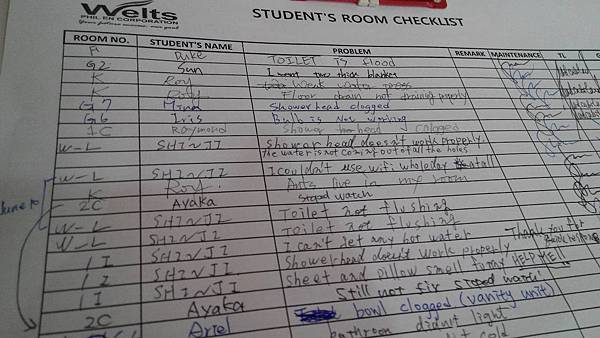 Welts
PHIL EN CORPORATION
STUDENT'S ROOM CHECKLIST
ROOM NO. STUDENT'S NAME PROBLEM REMARK MAINTENANCE TL
Duke TOILET IS FLOOD
G2 Sun I want two thick blanket
K Roy Weak water press
K Roy Floor drain not draining properly
G7 Mina Shower head clogged
G6 Iris Bulb is Not working
1C Raymond Shower head clogged
W-L SHINJI Shower head doesn't work properly
The water is not coming out of all the holes
W-L SHINJI I couldn't use wifi, whole day at all
K Roy Ants live in my room
2C Ayaka Stoped watch
W-L SHINJI Toilet not flushing
W-L SHINJI Toilet not flushing
11 SHINJI I can't get any hot water
12 SHINJI Showerhead doesn't work properly Thank you for
11 SHINJI sheet and pillow smell funny HELP ME!!
2C Ayaka Still not fix stoped watch
Ariel bowl clogged (vanity unit)
bathroom didn't light
cold
June 10